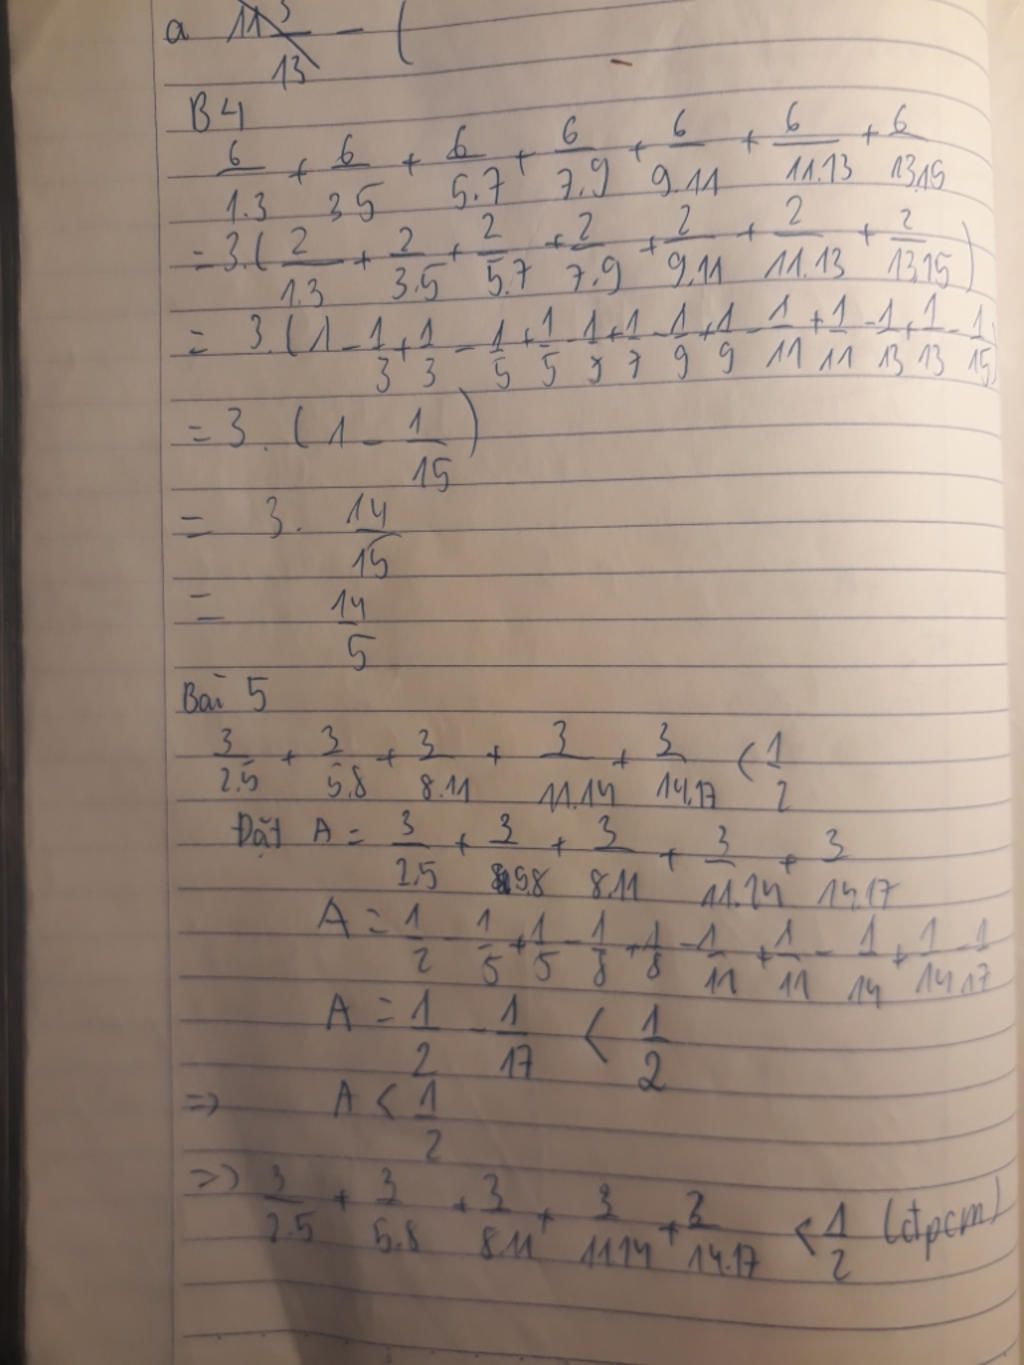 a 11 3/13 - (
B4
6/1.3 + 6/3 5 + 6/5.7 + 6/7.9 + 6/9.11 + 6/11.13 + 6/13.15
= 3.( 2/1.3 + 2/3.5 + 2/5.7 + 2/7.9 + 2/9.11 + 2/11.13 + 2/13.15 )
= 3.( 1 - 1/3 + 1/3 - 1/5 + 1/5 - 1/7 + 1/7 - 1/9 + 1/9 - 1/11 + 1/11 - 1/13 + 1/13 - 1/15 )
= 3. ( 1 - 1/15 )
= 3. 14/15
= 14/5
Bài 5
3/2.5 + 3/5.8 + 3/8.11 + 3/11.14 + 3/14.17 < 1/2
Đặt A = 3/2.5 + 3/5.8 + 3/8.11 + 3/11.14 + 3/14.17
A = 1/2 - 1/5 + 1/5 - 1/8 + 1/8 - 1/11 + 1/11 - 1/14 + 1/14 - 1/17
A = 1/2 - 1/17 < 1/2
=> A < 1/2
=> 3/2.5 + 3/5.8 + 3/8.11 + 3/11.14 + 3/14.17 < 1/2 (đpcm)